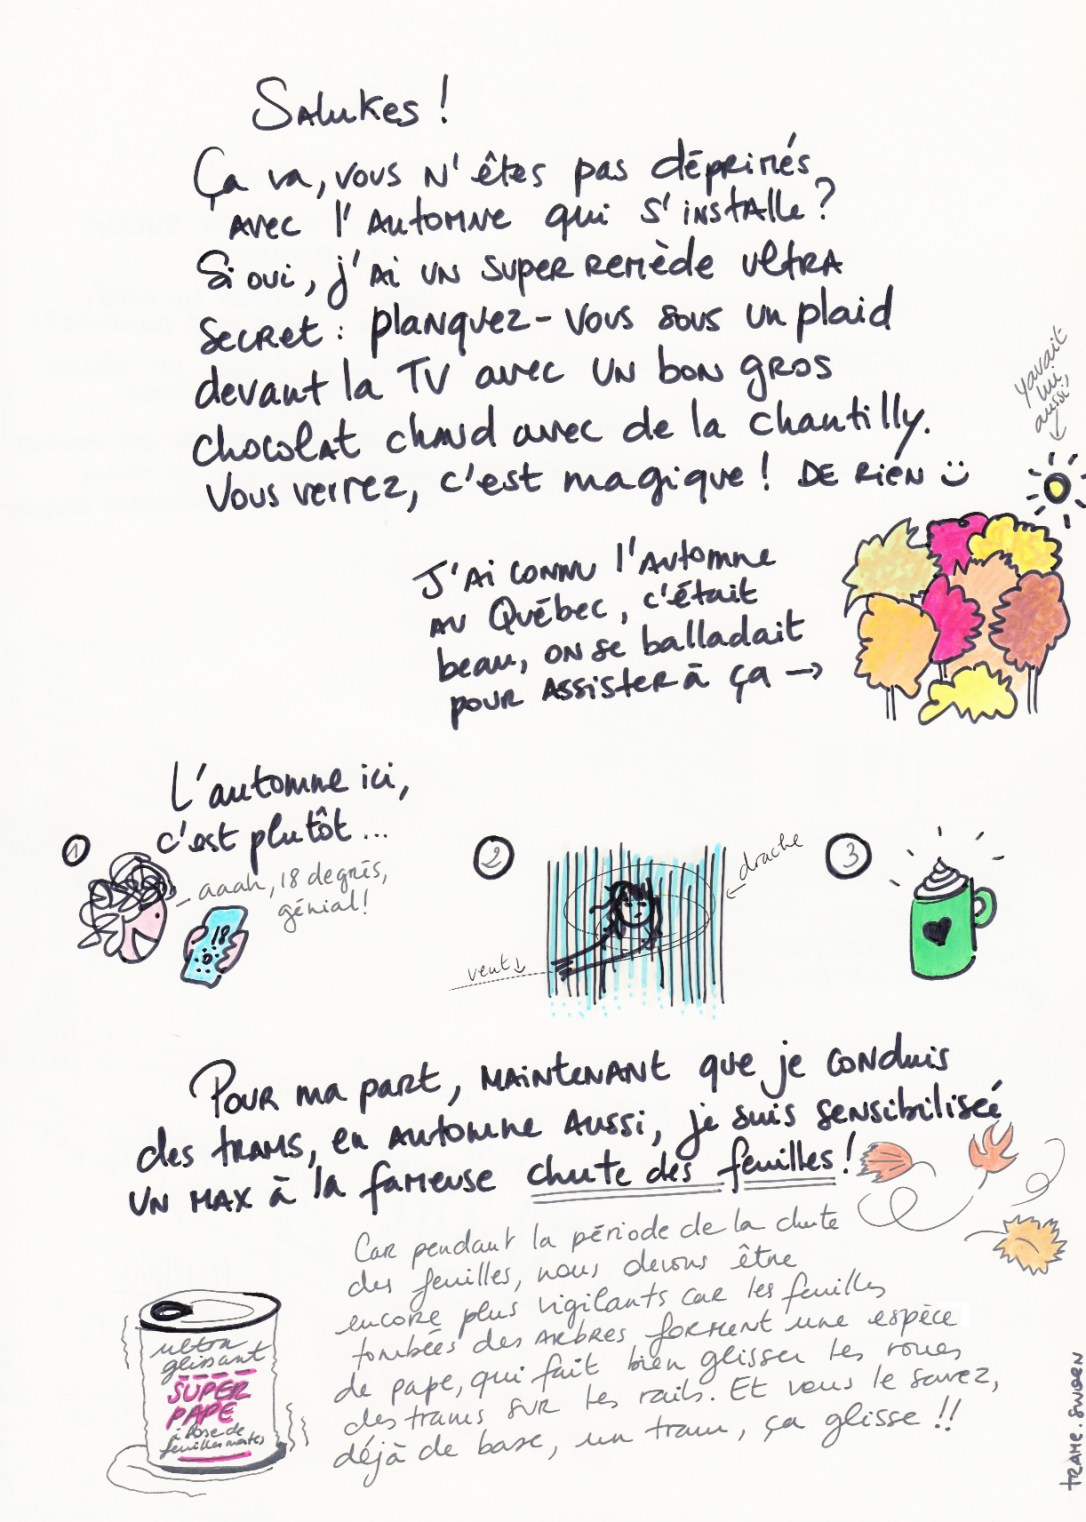 Salukes !
Ça va, vous n'êtes pas déprimés
avec l'automne qui s'installe ?
Si oui, j'ai un super remède ultra
secret : planquez-vous sous un plaid
devant la TV avec un bon gros
chocolat chaud avec de la chantilly.
Vous verrez, c'est magique ! DE RIEN
yavait
lui
aussi,
J'ai connu l'automne
au Québec, c'était
beau, on se balladait
pour assister à ça →
L'automne ici,
c'est plutôt ...
1
aaah, 18 degrés,
génial !
18
2
drache
vent
3
Pour ma part, maintenant que je conduis
des trams, en automne aussi, je suis sensibilisée
un max à la fameuse chute des feuilles !
Car pendant la période de la chute
des feuilles, nous devons être
encore plus vigilants car les feuilles
tombées des arbres forment une espèce
de pape, qui fait bien glisser les roues
des trams sur les rails. Et vous le savez,
déjà de base, un tram, ça glisse !!
ultra
glissant
SUPER
PAPE
à base de
feuilles mortes